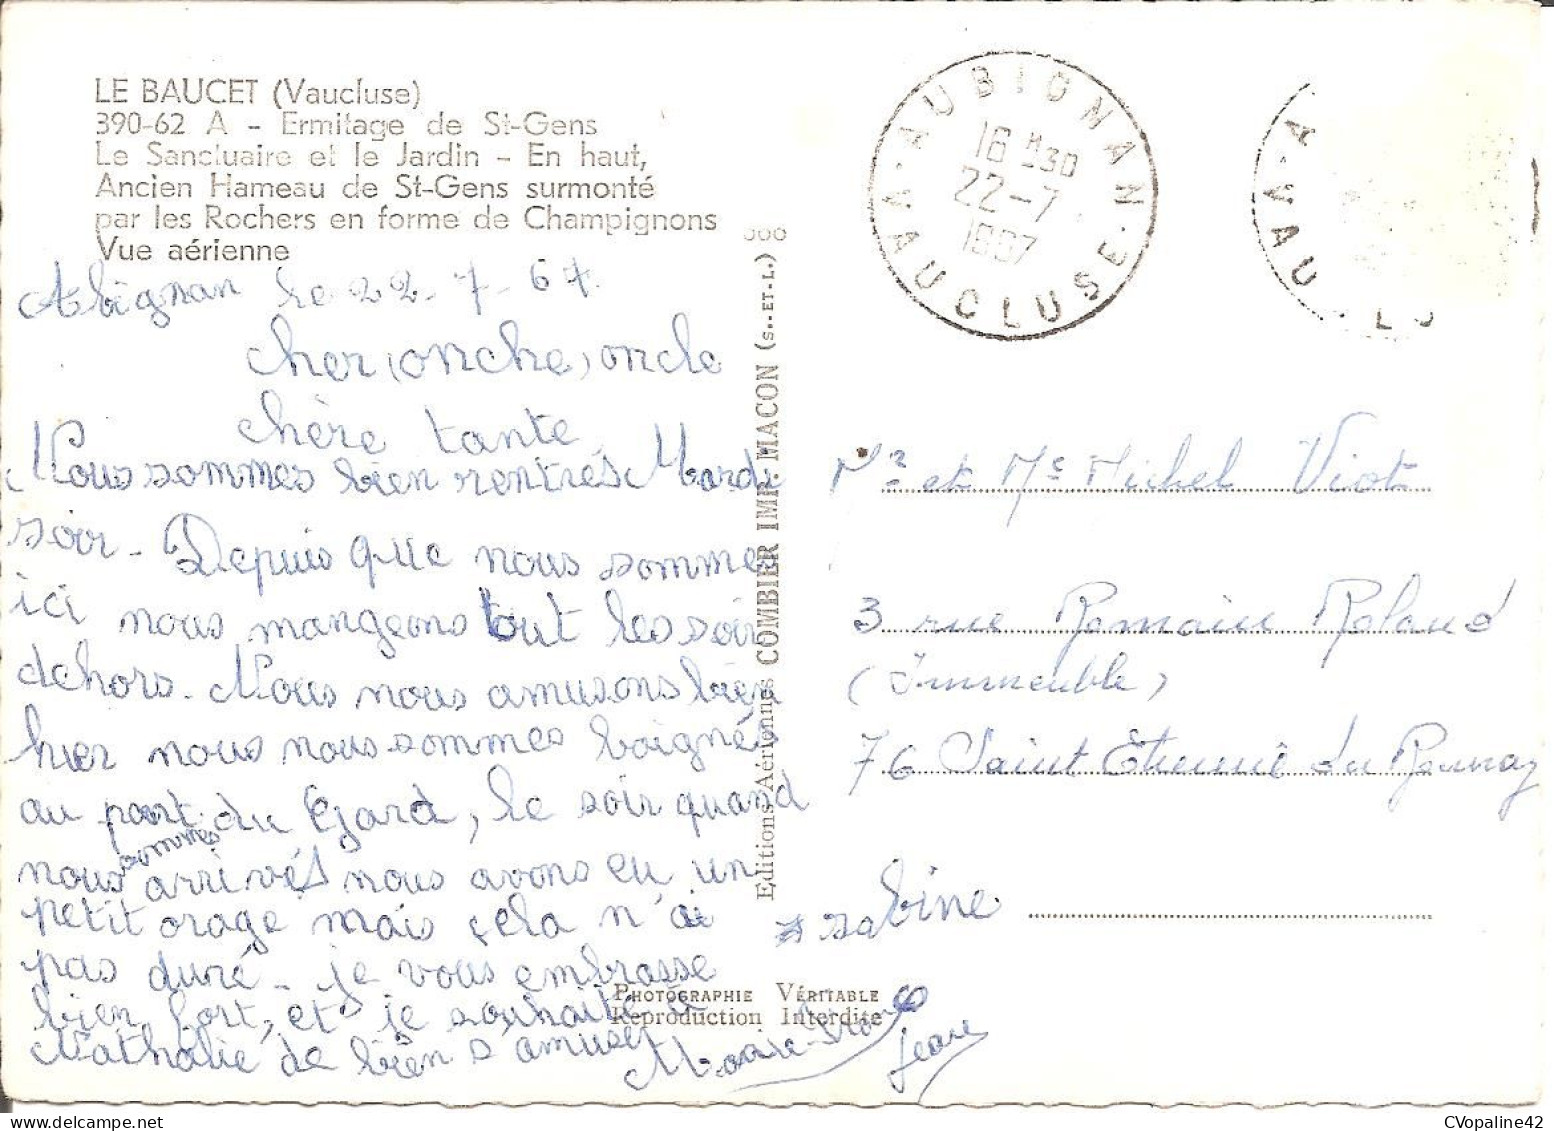 LE BAUCET (Vaucluse)
390-62 A - Ermitage de St-Gens
Le Sanctuaire et le Jardin - En haut,
Ancien Hameau de St-Gens surmonté
par les Rochers en forme de Champignons
Vue aérienne
Abignan le 22-7-67.
cher (onche) oncle
chère tante
Nous sommes bien rentrés Mardi
soir - Depuis que nous somme
ici nous mangeons tout les soir
dehors. Nous nous amusons bien
hier nous nous sommes baignés
au pont du Gard, le soir quand
nous sommes arrivés nous avons eu un
petit orage mais cela n'a
pas duré - je vous embrasse
bien fort, et je souhaite à
Nathalie de bien s'amuser
sabine
Marie-
Jean
Editions Aériennes COMBIER IMP. MACON (S.-ET-L.)
PHOTOGRAPHIE VÉRITABLE
Reproduction Interdite
AUBIGNAN
16 H30
22-7
1967
VAUCLUSE
Mr et Me Michel Viot
3 rue Romain Roland
(Immeuble)
76 Saint Etienne du Rouvray
CVopaline42